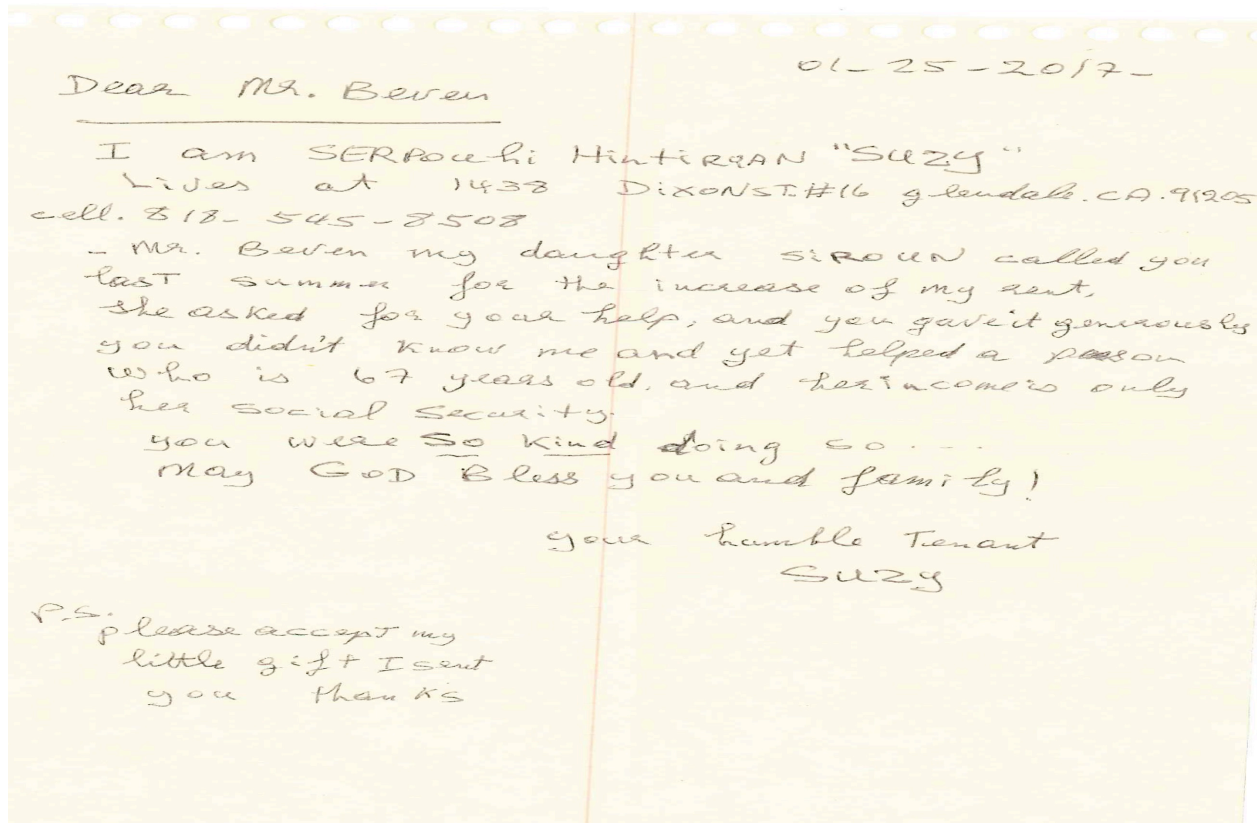 01-25-2017-
Dear Mr. Beven
I am SERPouhi HintiRQAN "SUZY"
Lives at 1438 DixONST.#16 glendale.CA.91205
cell. 818-545-8508
- Mr. Beven my daughter SiROUN called you
last summer for the increase of my rent,
she asked for your help, and you gave it generously
you didn't know me and yet helped a person
who is 67 years old, and her income is only
her social security.
you were So Kind doing so....
May GOD Bless you and family!
your humble Tenant
SUZY
P.S. please accept my
little gift I sent
you thanks